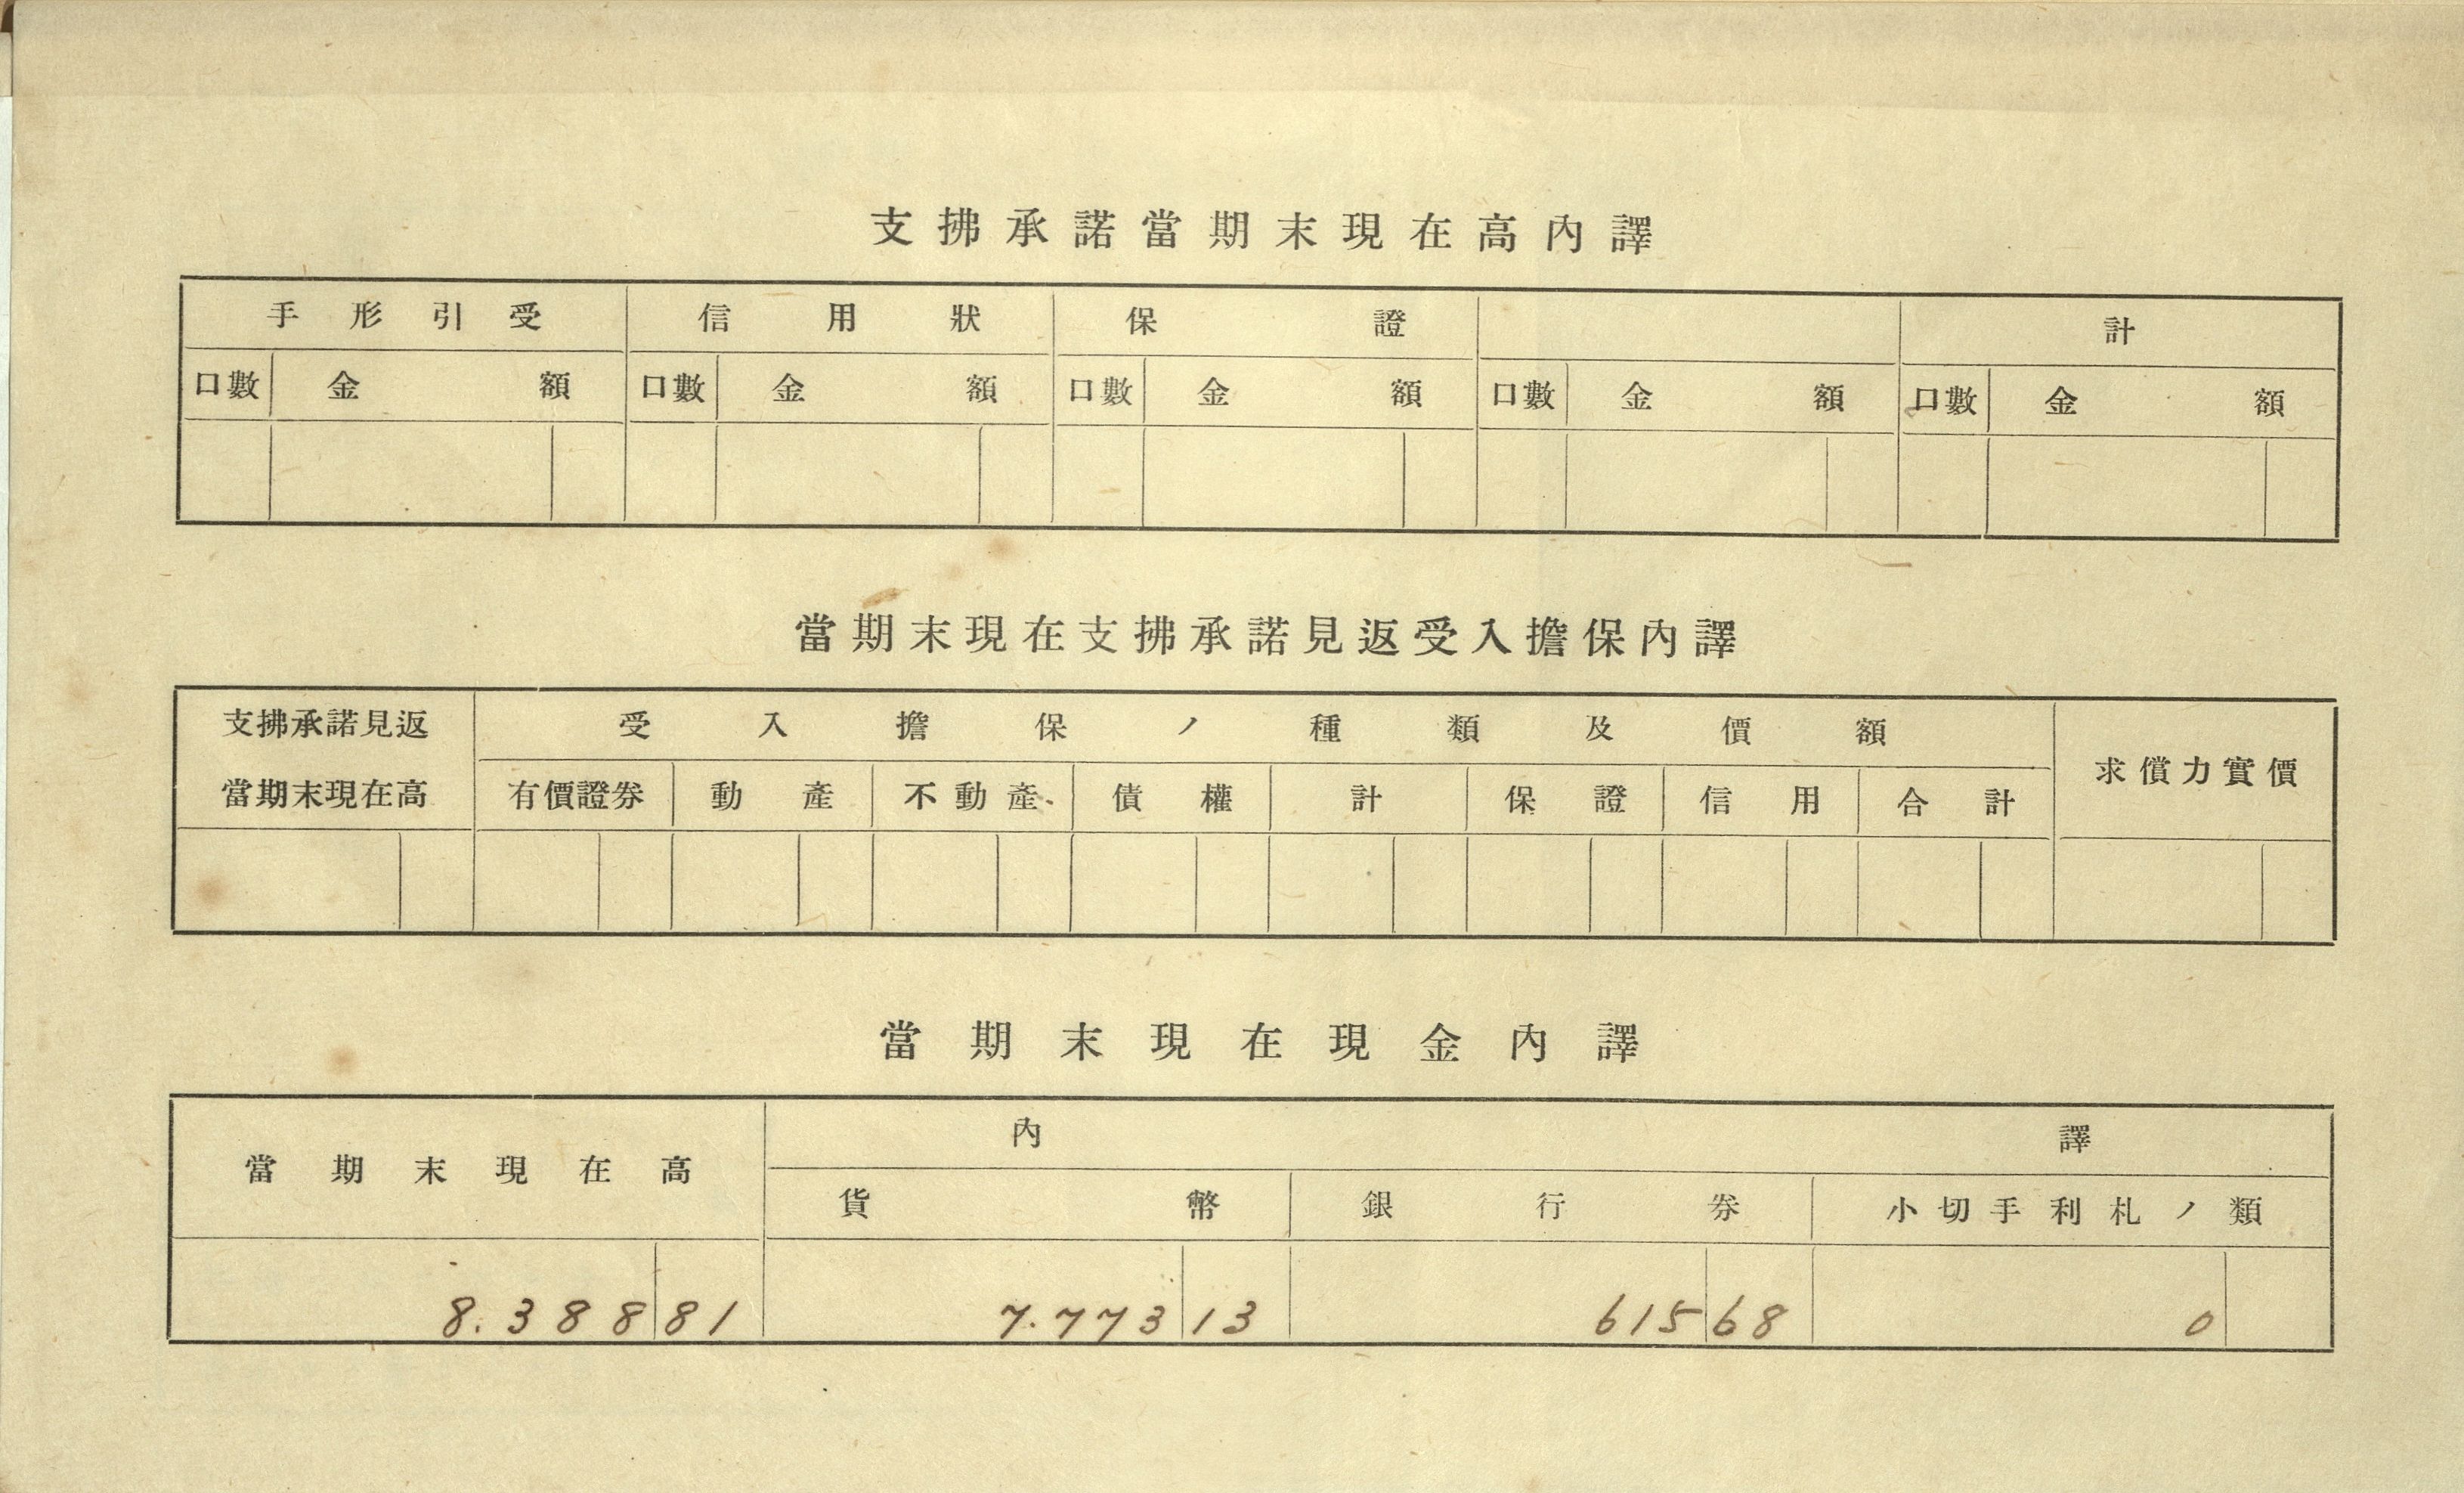 支拂承諾當期末現在高內譯
手形引受 信用狀 保證 計
口數 金額 口數 金額 口數 金額 口數 金額 口數 金額
當期末現在支拂承諾見返受入擔保內譯
支拂承諾見返 受入擔保ノ種類及價額
當期末現在高 有價證券 動產 不動產 債權 計 保證 信用 合計 求償力實價
當期末現在現金內譯
當期末現在高 內譯
貨幣 銀行券 小切手利札ノ類
8.388 81 7.773 13 615 68 0